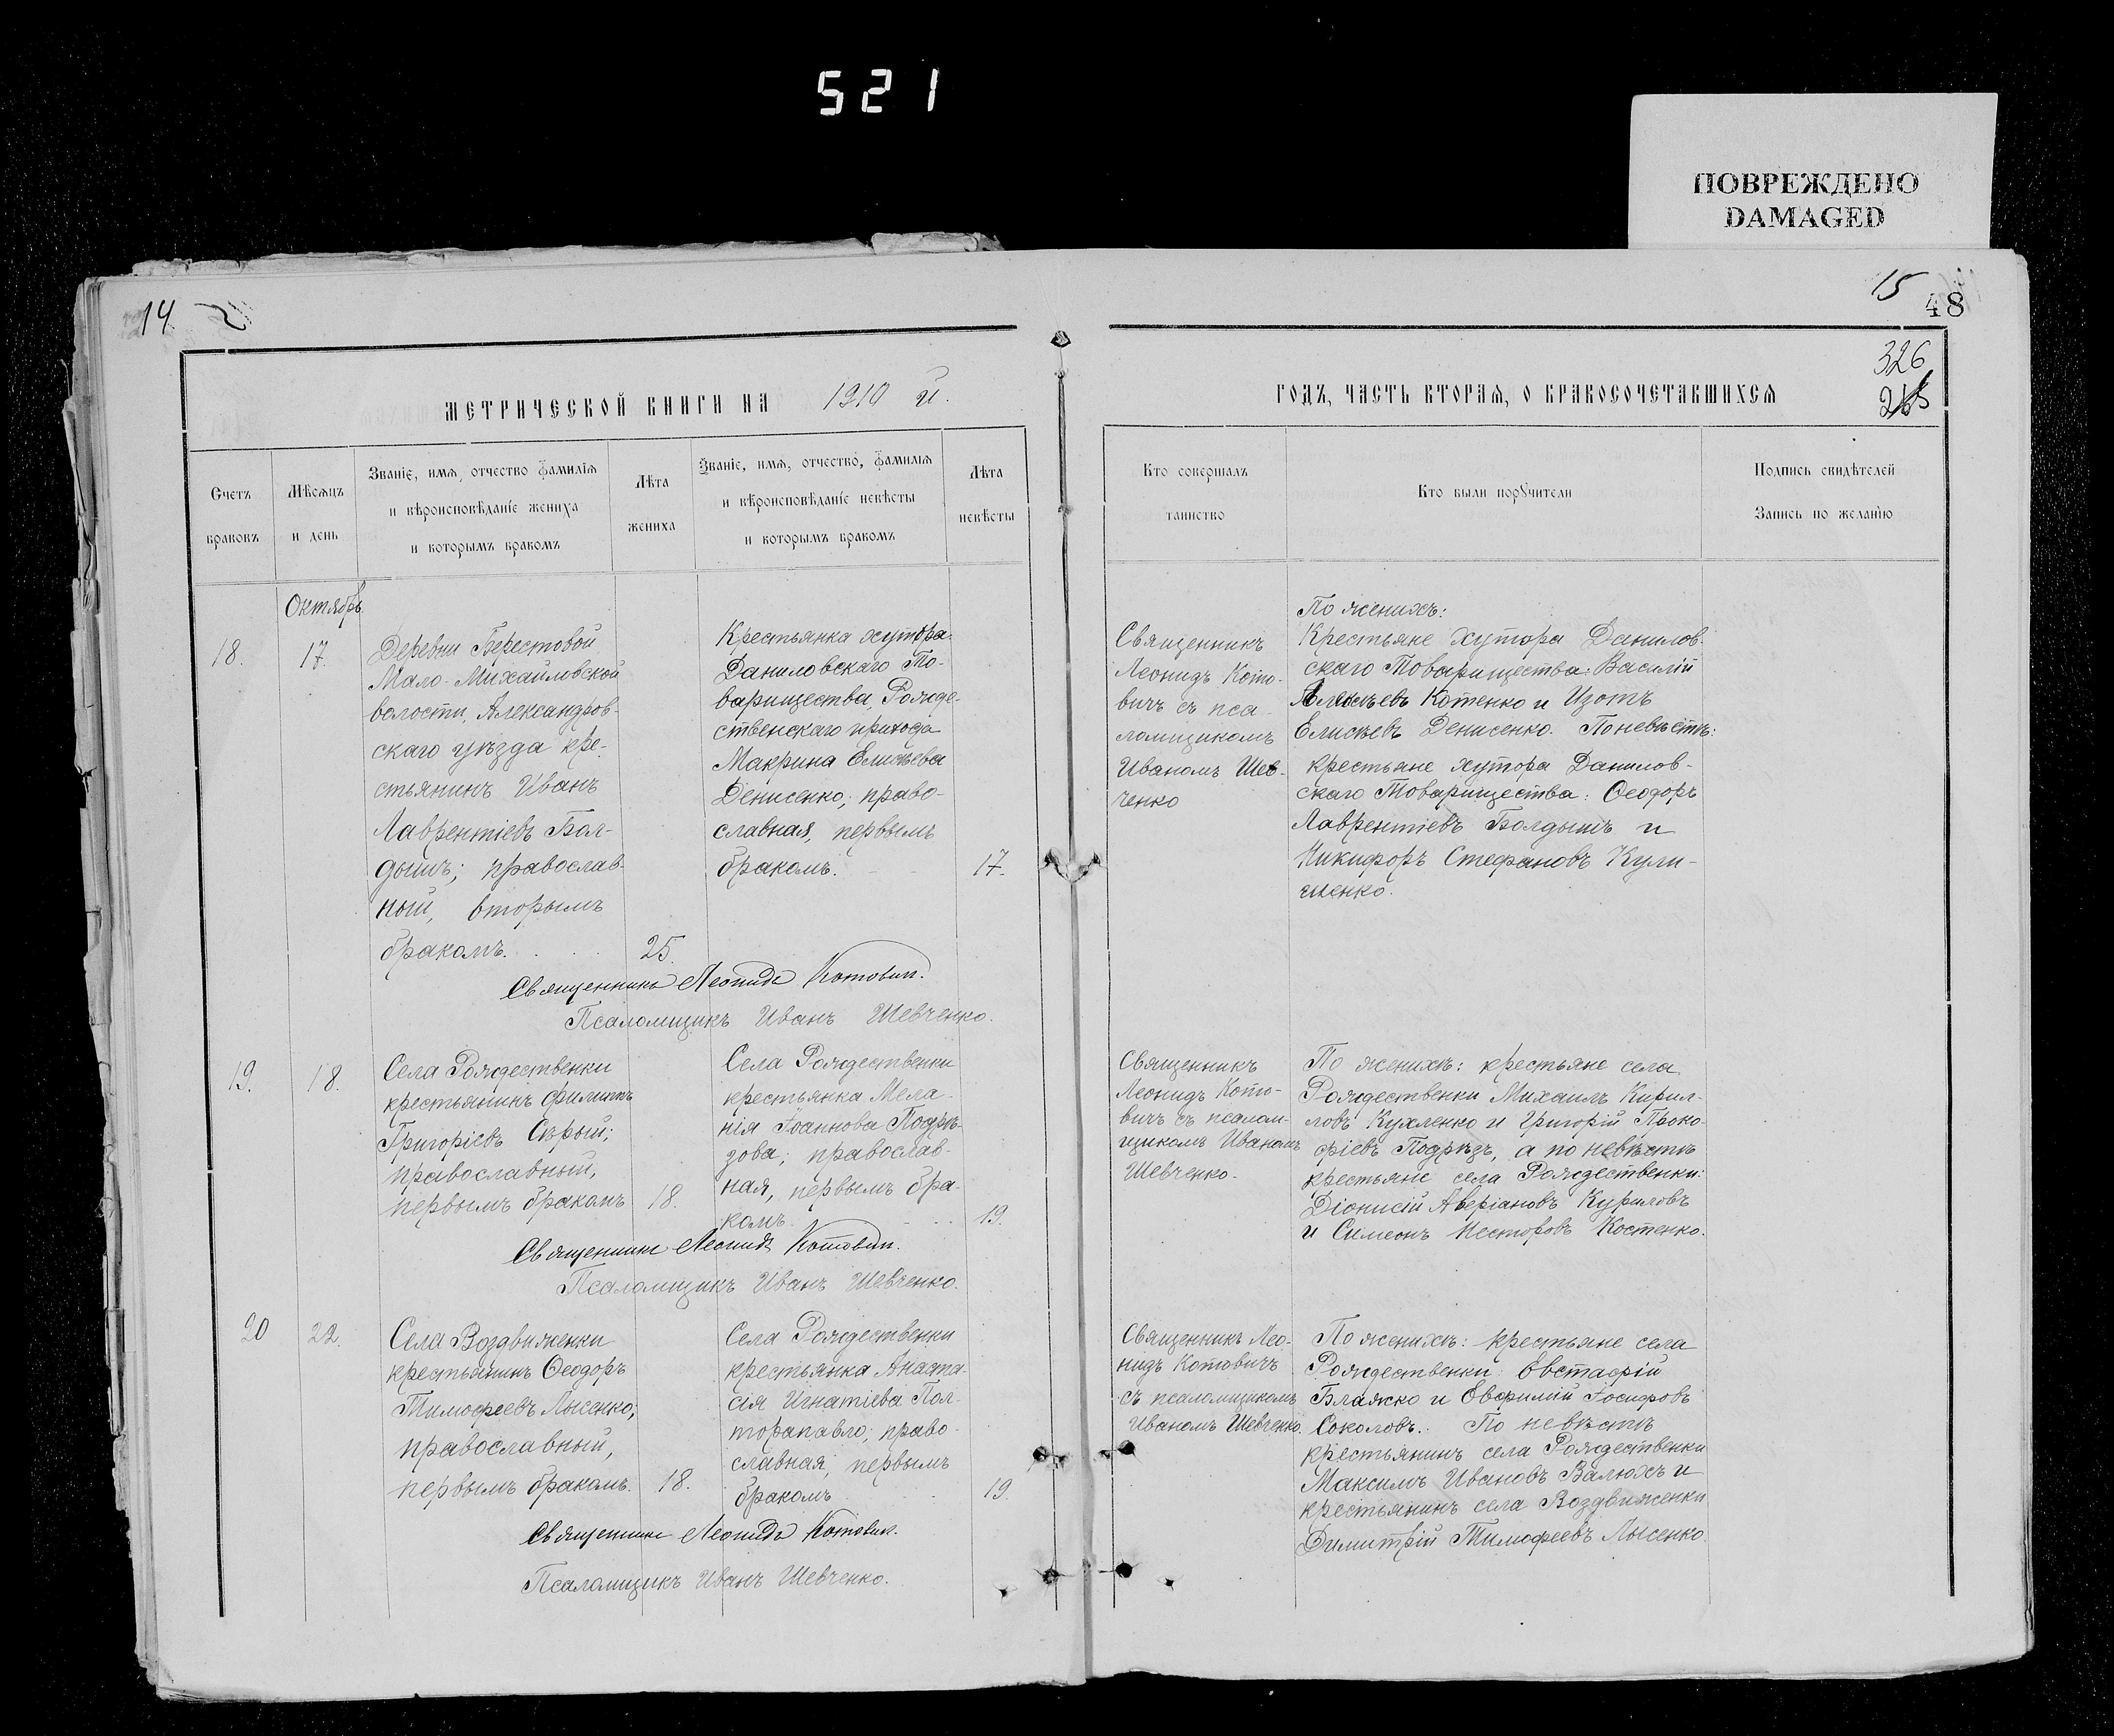 521
ПОВРЕЖДЕНО
DAMAGED
14
15
48
326
МЕТРИЧЕСКОЙ КНИГИ НА 1910 й.
ГОДЪ, ЧАСТЬ ВТОРАЯ, О БРАКОСОЧЕТАВШИХСЯ
Счетъ
браковъ
Мѣсяцъ
и день
Званіе, имя, отчество фамилія
и вѣроисповѣданіе жениха
и которымъ бракомъ
Лѣта
жениха
Званіе, имя, отчество, фамилія
и вѣроисповѣданіе невѣсты
и которымъ бракомъ
Лѣта
невѣсты
Кто совершалъ
таинство
Кто были поручители
Подпись свидѣтелей
Запись по желанію
Октябрь
18.
17.
Деревни Берестовой
Мало-Михайловской
волости, Александров-
скаго уѣзда кре-
стьянинъ Иванъ
Лаврентіевъ Бол-
дышъ; православ-
ный, вторымъ
бракомъ.
25.
Крестьянка хутора
Даниловскаго То-
варищества, Рожде-
ственскаго прихода
Макрина Елисѣева
Денисенко; право-
славная, первымъ
бракомъ.
17.
Священникъ
Леонидъ Кото-
вичъ съ пса-
ломщикомъ
Иваномъ Шев-
ченко
По женихѣ:
Крестьяне хутора Данилов-
скаго Товарищества: Василій
Алексѣевъ Котенко и Изотъ
Елисѣевъ Денисенко. По невѣстѣ:
крестьяне хутора Данилов-
скаго Товарищества: Ѳеодоръ
Лаврентіевъ Болдышъ и
Никифоръ Стефановъ Кули-
шенко.
Священникъ Леонидъ Котовичъ.
Псаломщикъ Иванъ Шевченко.
19.
18.
Села Рождественки
крестьянинъ Филиппъ
Григоріевъ Сѣрый;
православный,
первымъ бракомъ
18.
Села Рождественки
крестьянка Мела-
нія Іоаннова Подрѣ-
зова; православ-
ная, первымъ бра-
комъ.
19.
Священникъ
Леонидъ Кото-
вичъ съ псалом-
щикомъ Иваномъ
Шевченко.
По женихѣ: крестьяне села
Рождественки Михаилъ Кирил-
ловъ Кухленко и Григорій Проко-
фіевъ Подрѣзъ, а по невѣстѣ
крестьяне села Рождественки:
Діонисій Аверіановъ Куриловъ
и Симеонъ Несторовъ Костенко.
Священникъ Леонидъ Котовичъ.
Псаломщикъ Иванъ Шевченко.
20
22.
Села Воздвиженки
крестьянинъ Ѳеодоръ
Тимофеевъ Лысенко;
православный,
первымъ бракомъ.
18.
Села Рождественки
крестьянка Анаста-
сія Игнатіева Пол-
торапавло; право-
славная, первымъ
бракомъ
19.
Священникъ Лео-
нидъ Котовичъ
съ псаломщикомъ
Иваномъ Шевченко.
По женихѣ: крестьяне села
Рождественки: Евстафій
Блажко и Евфимій Іосифовъ
Соколовъ. По невѣстѣ
крестьянинъ села Рождественки
Максимъ Ивановъ Валюхъ и
крестьянинъ села Воздвиженки
Димитрій Тимофеевъ Лысенко.
Священникъ Леонидъ Котовичъ.
Псаломщикъ Иванъ Шевченко.